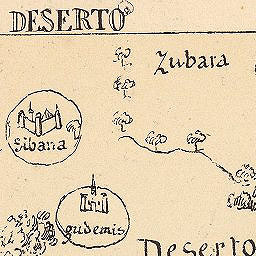 DESERTO
Zubara
Sibana
gudemis
Deserto